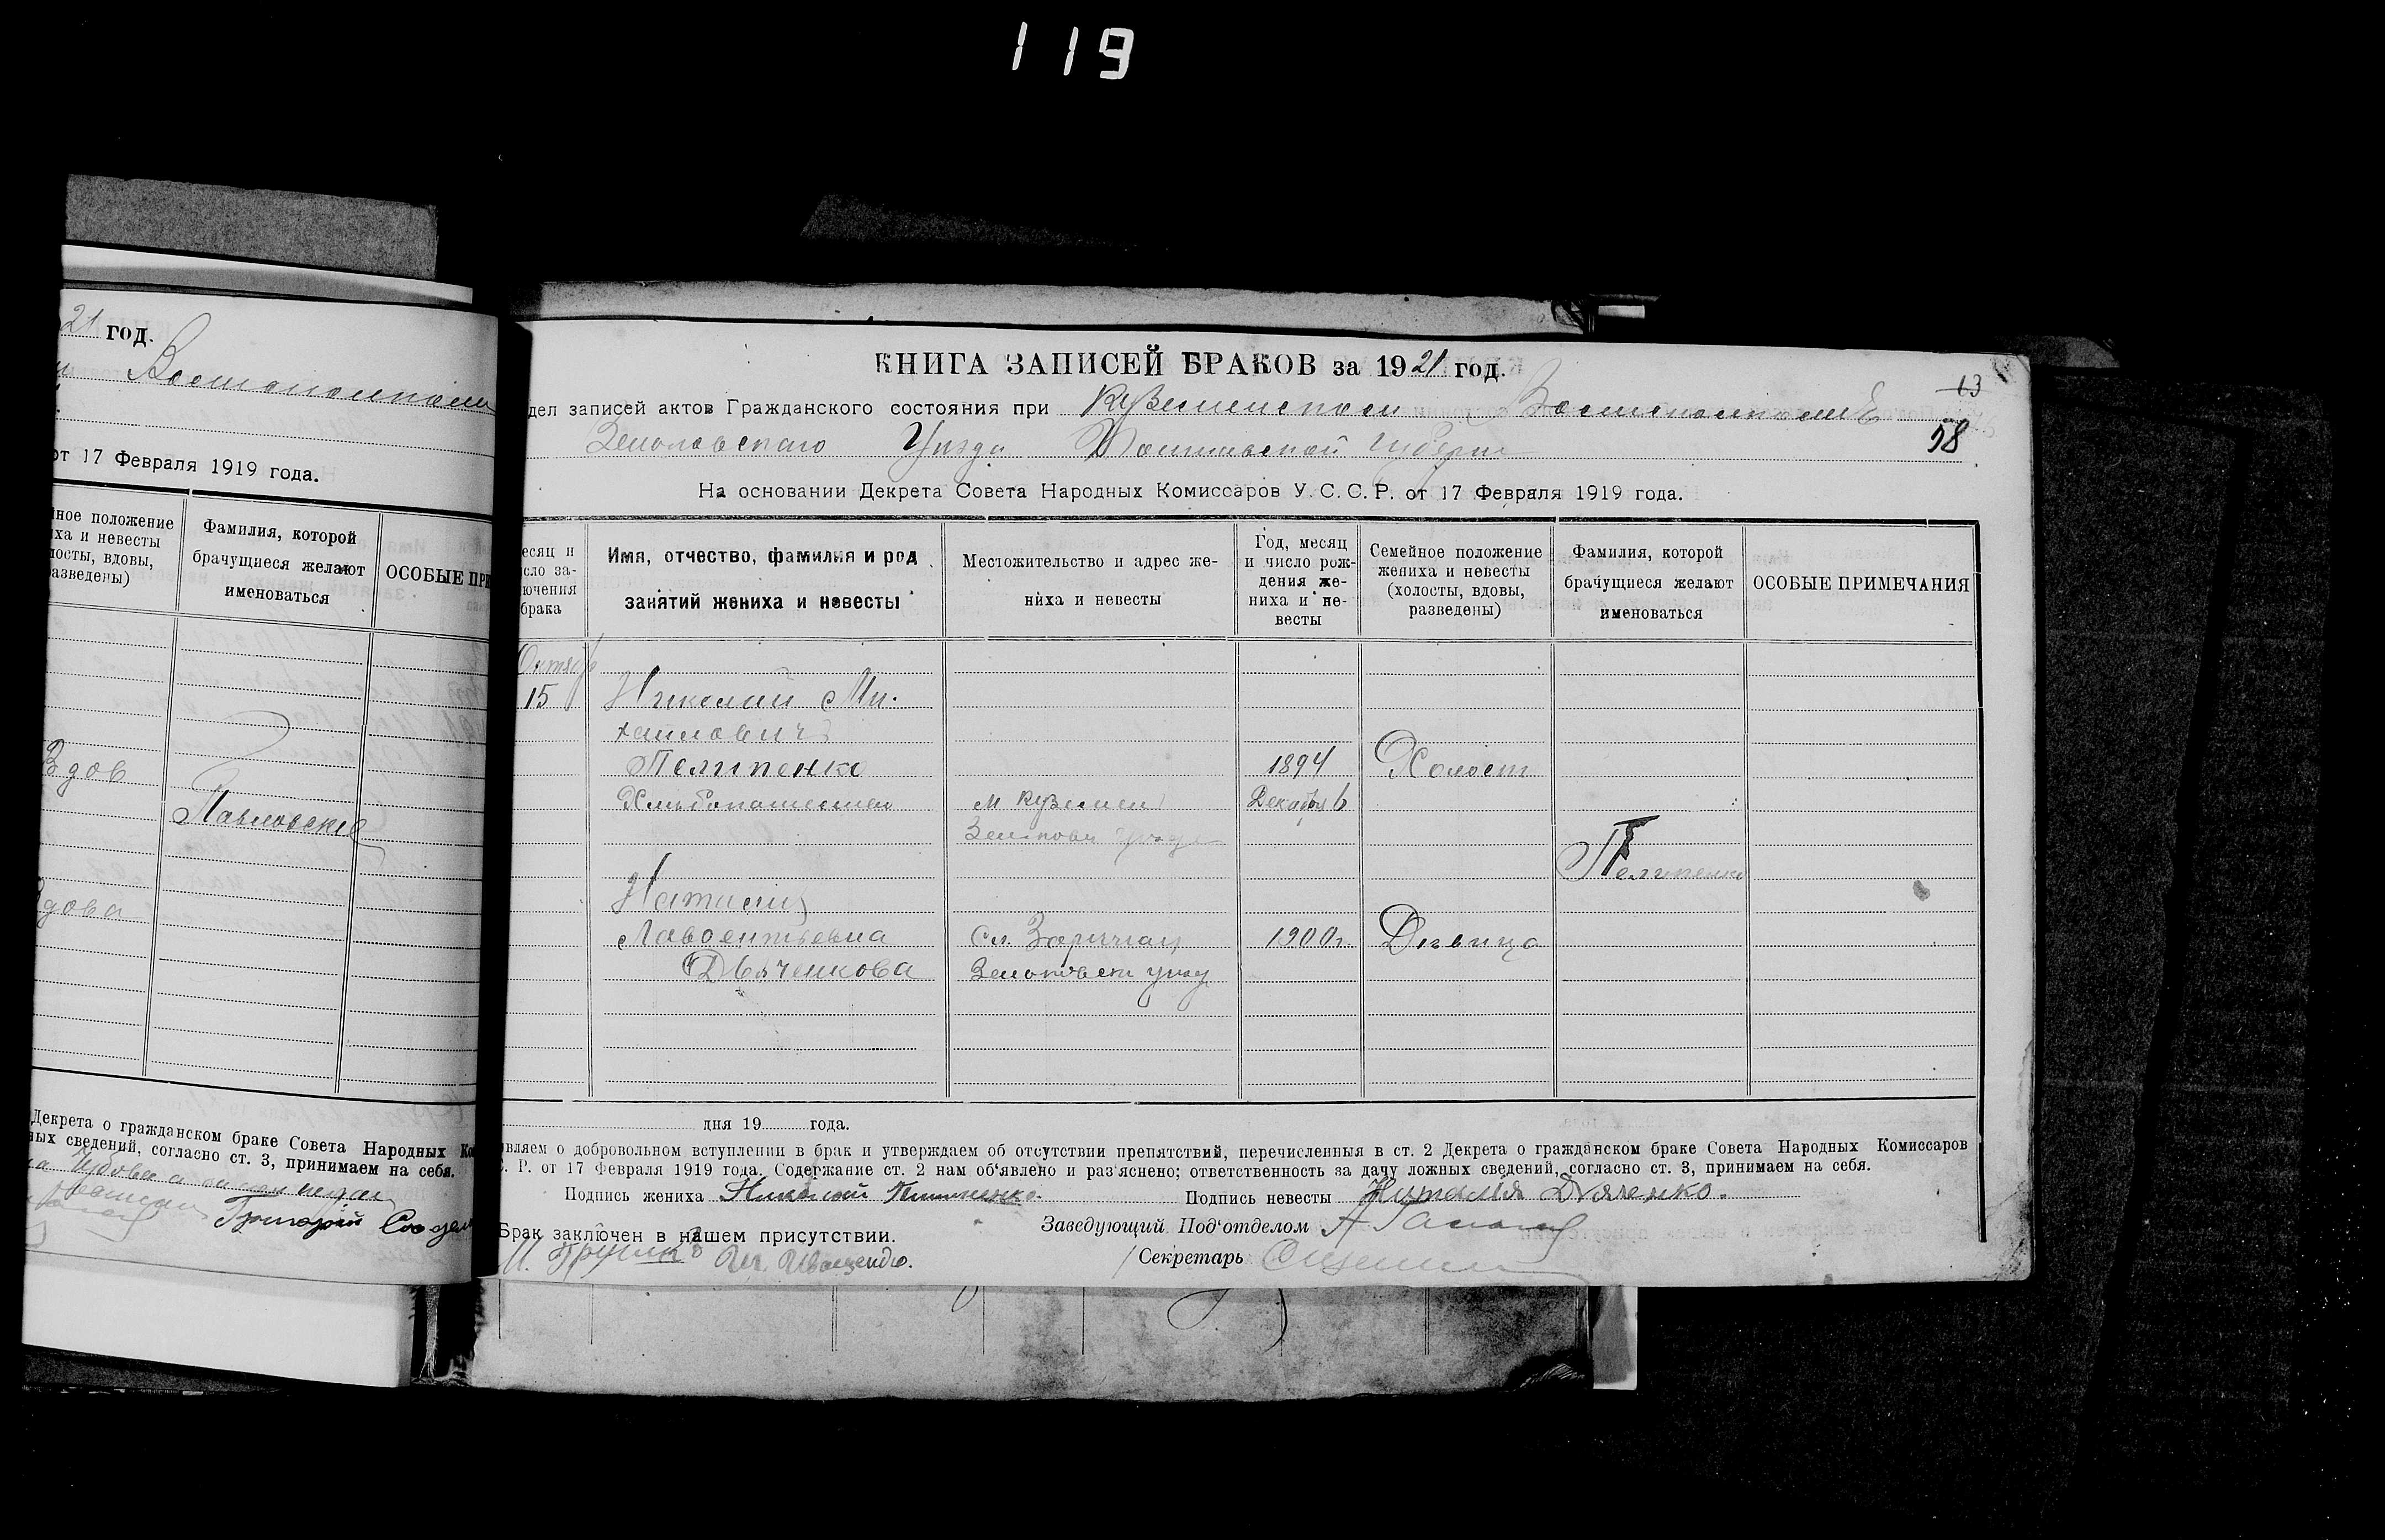 119
21 год.
от 17 Февраля 1919 года.
ное положение
ха и невесты
лосты, вдовы,
азведены)
Фамилия, которой
брачущиеся желают
именоваться
ОСОБЫЕ ПРИ
Вдов
Павловские
дова
Декрета о гражданском браке Совета Народных Ко
ных сведений, согласно ст. 3, принимаем на себя.
Григорій
КНИГА ЗАПИСЕЙ БРАКОВ за 1921 год.
13
58
дел записей актов Гражданского состояния при
Уезда Губерни
На основании Декрета Совета Народных Комиссаров У.С.С.Р. от 17 Февраля 1919 года.
есяц и
сло за-
ючения
брака
Имя, отчество, фамилия и род
занятий жениха и невесты
Местожительство и адрес же-
ниха и невесты
Год, месяц
и число рож-
дения же-
ниха и не-
весты
Семейное положение
жениха и невесты
(холосты, вдовы,
разведены)
Фамилия, которой
брачущиеся желают
именоваться
ОСОБЫЕ ПРИМЕЧАНИЯ
Октябр
15 Николай Ми-
хаилович
Пелипенко 1894 Холост
Декабря 6
Пелипенко
Наталия
Лаврентьевна Сл. Заричная 1900г. Девица
Дьяченкова
дня 19 года.
вляем о добровольном вступлении в брак и утверждаем об отсутствии препятствий, перечисленныя в ст. 2 Декрета о гражданском браке Совета Народных Комиссаров
С. Р. от 17 Февраля 1919 года. Содержание ст. 2 нам об'явлено и раз'яснено; ответственность за дачу ложных сведений, согласно ст. 3, принимаем на себя.
Подпись жениха Николай Пелипенко. Подпись невесты Наталія Дяченко.
Брак заключен в нашем присутствии. Заведующий Под'отделом
Иващенко. Секретарь